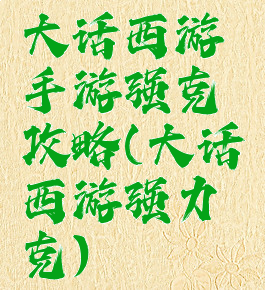 大话西游
手游强克
攻略(大话
西游强力
克)